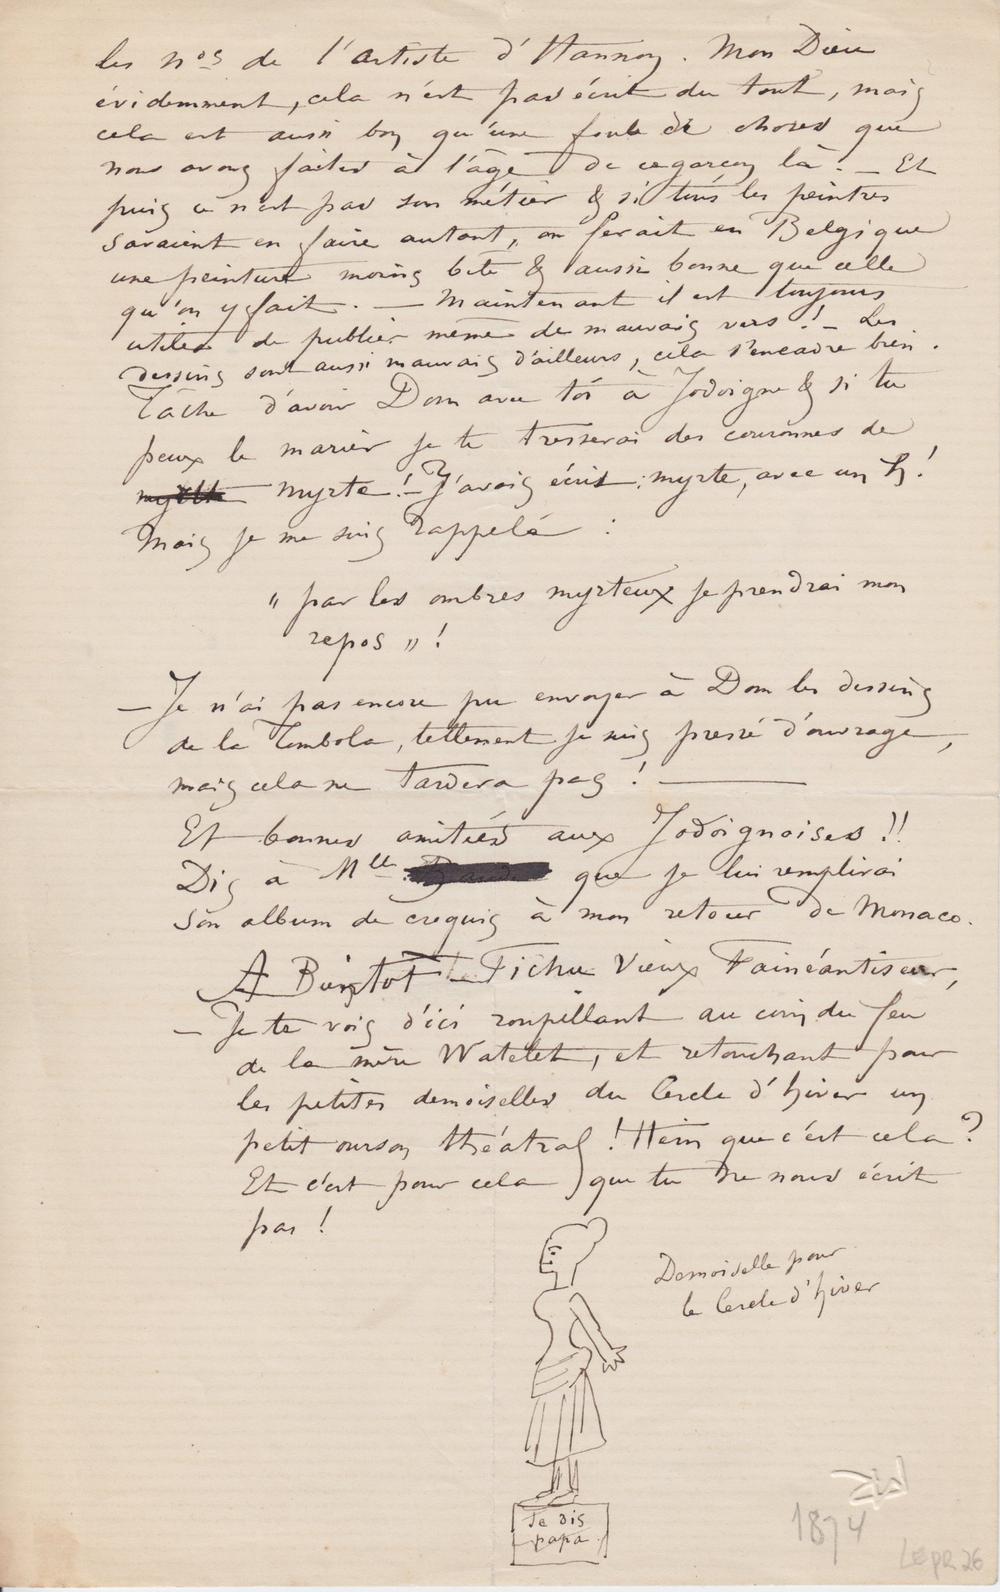 les nos de l'artiste d'Hannon. Mon Dieu
évidemment, cela n'est pas écrit du tout, mais
cela est aussi bon qu'une foule de choses que
nous avons faites à l'âge de ce garçon là. — Et
puis ce n'est pas son métier & si tous les peintres
savaient en faire autant, on ferait en Belgique
une peinture moins bête & aussi bonne que celle
qu'on y fait. — Maintenant il est toujours
utile de publier même de mauvais vers! — Les
dessins sont aussi mauvais d'ailleurs, cela s'encadre bien.
Tâche d'avoir Dom avec toi à Jodoigne & si tu
peux le marier je te tresserai des couronnes de
myrte! — J'avais écrit: myrte, avec un h!
Mais je me suis rappelé :
" par les ombres myrteux je prendrai mon
repos " !
— Je n'ai pas encore pu envoyer à Dom les dessins
de la Tombola, tellement je suis pressé d'ouvrage,
mais cela ne tardera pas ! —
Et bonnes amitiés aux Jodoignoises !!
Dis à Mlle que je lui remplirai
son album de croquis à mon retour de Monaco.
A Bientot Fichu Vieux Fainéantiseur,
— Je te vois d'ici roupillant au coin du feu
de la mère Watelet, et retouchant pour
les petites demoiselles du Cercle d'hiver un
petit ourson théâtral ! Hein que c'est cela ?
Et c'est pour cela que tu ne nous écrit
pas !
Demoiselle pour
le Cercle d'hiver
Je dis
papa
1874
LEpR 26